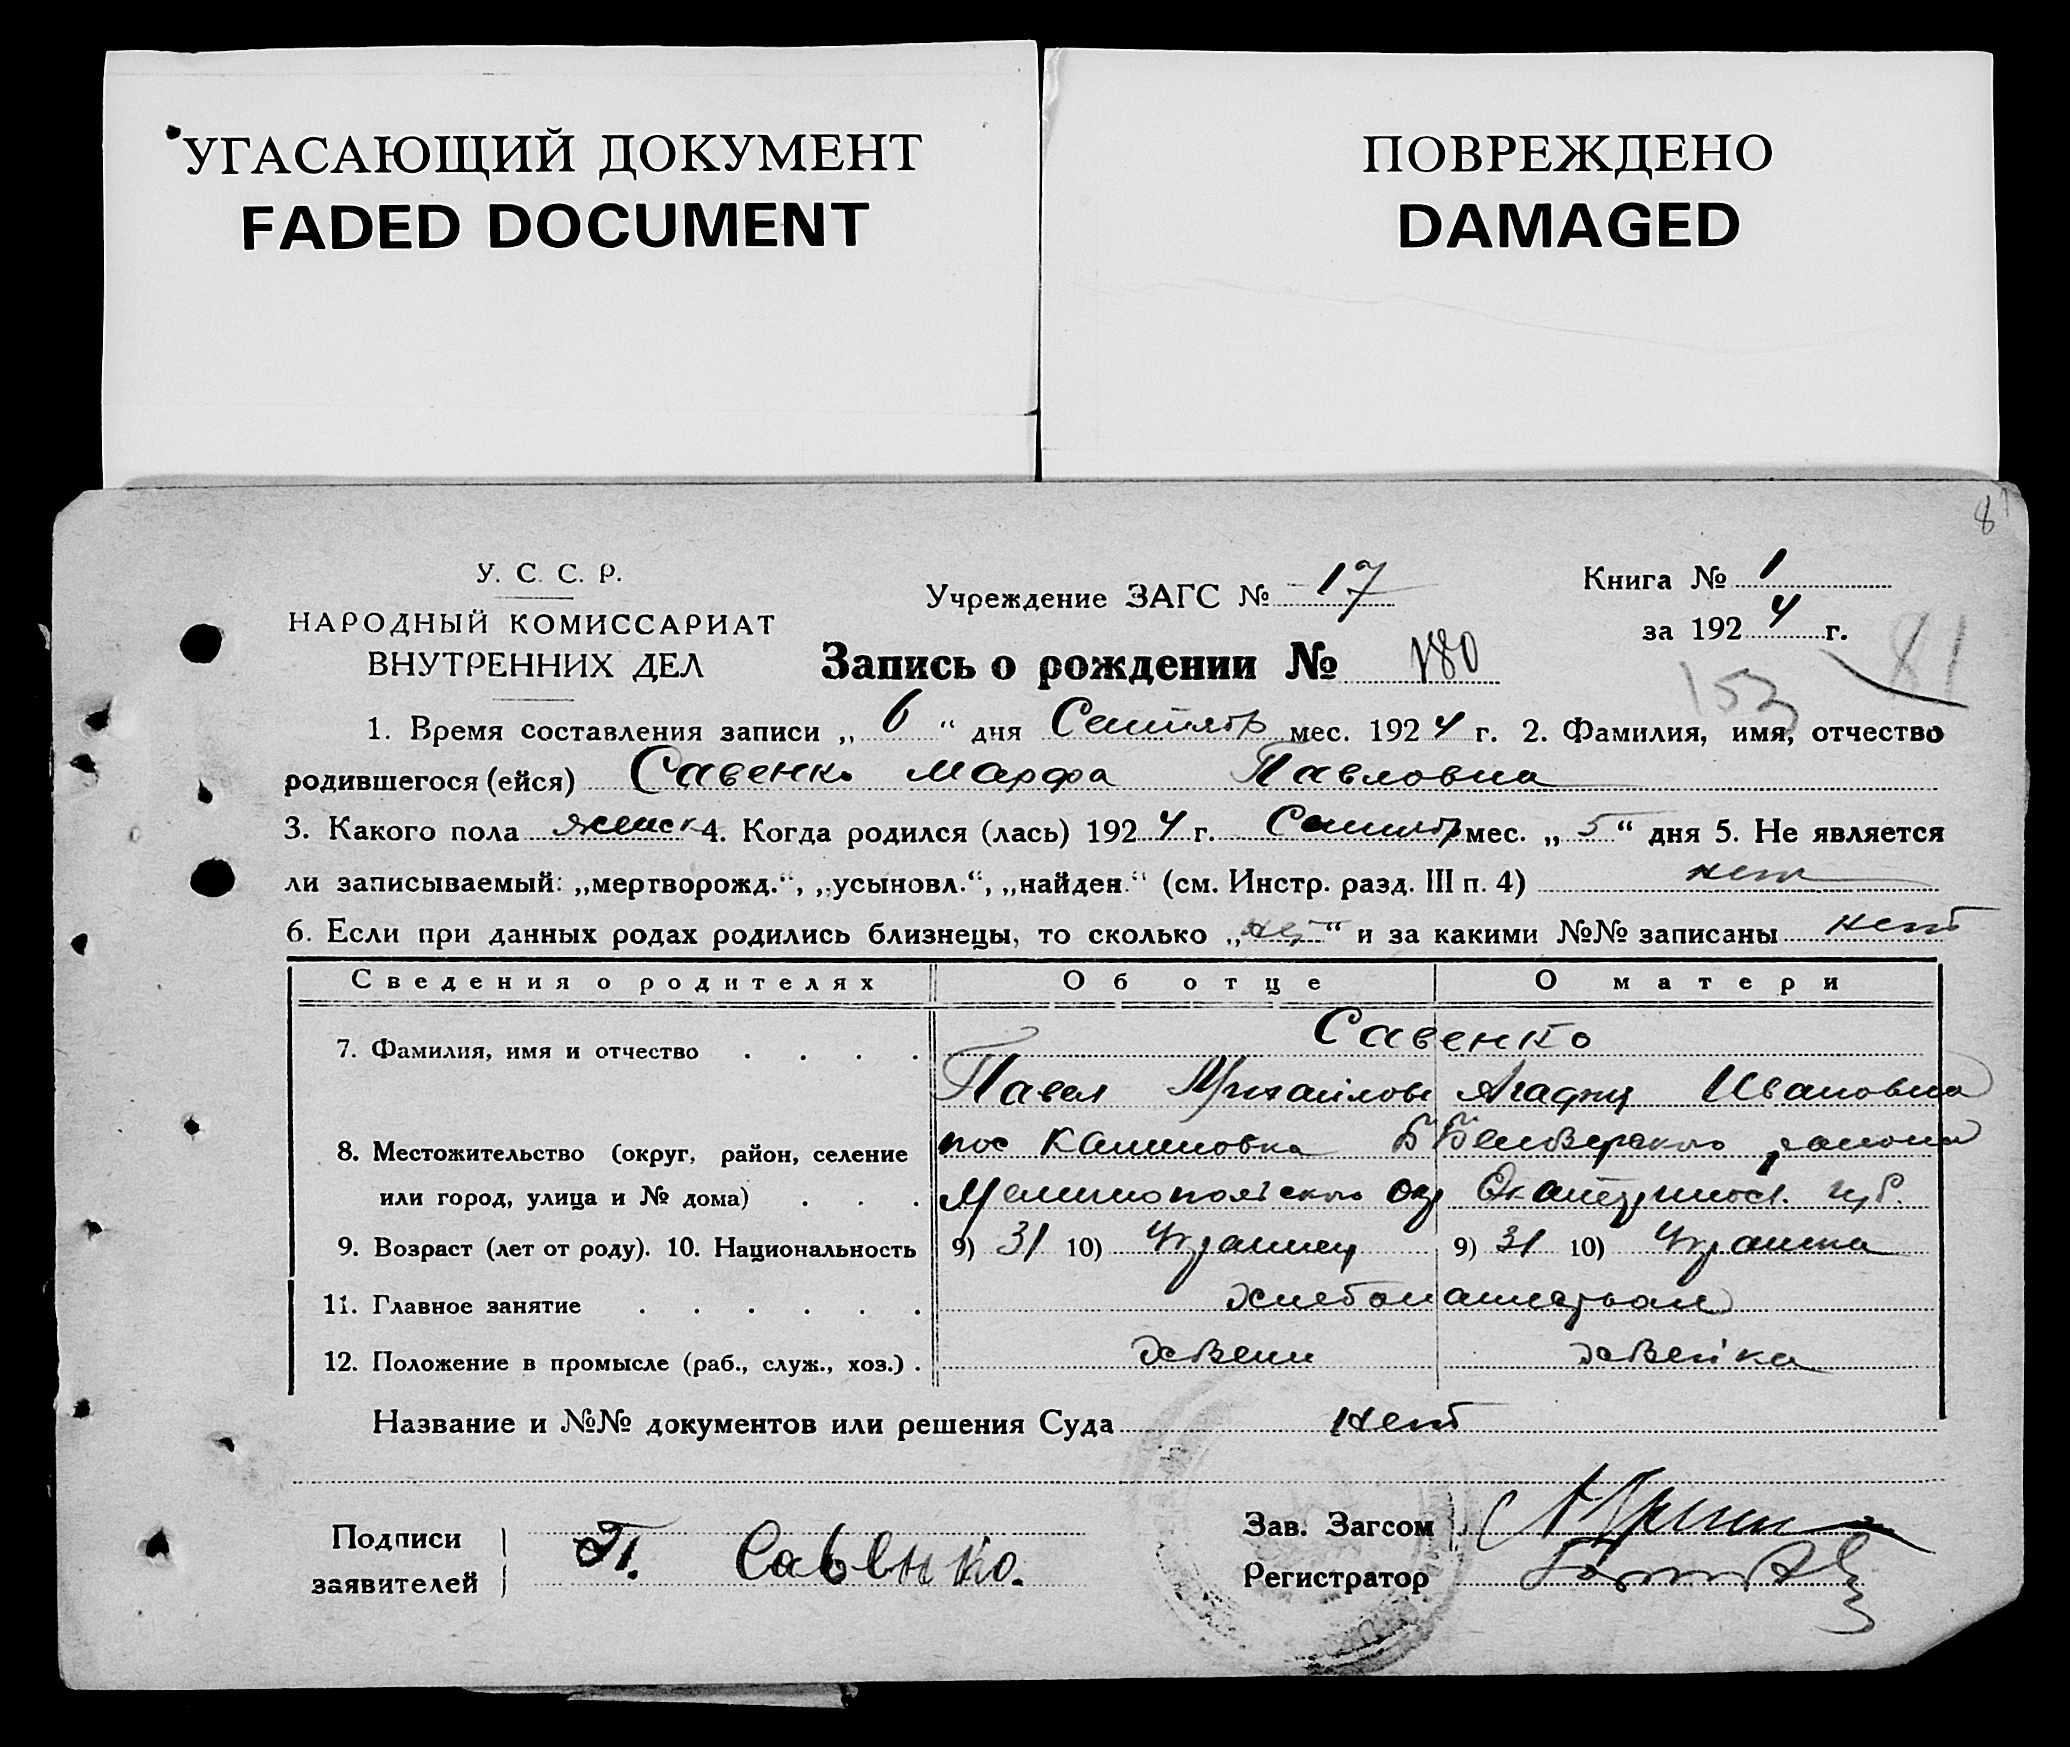 УГАСАЮЩИЙ ДОКУМЕНТ
FADED DOCUMENT
ПОВРЕЖДЕНО
DAMAGED
81
У. С. С. Р.
НАРОДНЫЙ КОМИССАРИАТ
ВНУТРЕННИХ ДЕЛ
Учреждение ЗАГС № 17
Книга № 1
за 1924 г.
81
153
Запись о рождении № 180
1. Время составления записи „ 6 “ дня Сентябр мес. 1924 г. 2. Фамилия, имя, отчество
родившегося (ейся) Савенко Марфа Павловна
3. Какого пола женск 4. Когда родился (лась) 1924 г. Сентябр мес. „ 5 “ дня 5. Не является
ли записываемый: „мертворожд.“, „усыновл.“, „найден.“ (см. Инстр. разд. III п. 4) нет
6. Если при данных родах родились близнецы, то сколько „нет“ и за какими №№ записаны нет
Сведения о родителях Об отце О матери
Савенко
7. Фамилия, имя и отчество
Павел Михайлов Агафия Ивановна
8. Местожительство (округ, район, селение пос Калиновка района
или город, улица и № дома) Мелитопольского окр Екатериносл. губ.
9. Возраст (лет от роду). 10. Национальность 9) 31 10) Украинец 9) 31 10) Украинка
11. Главное занятие хлебопашеством
12. Положение в промысле (раб., служ., хоз.)
Название и №№ документов или решения Суда нет
Подписи
заявителей
П. Савенко.
Зав. Загсом
Регистратор